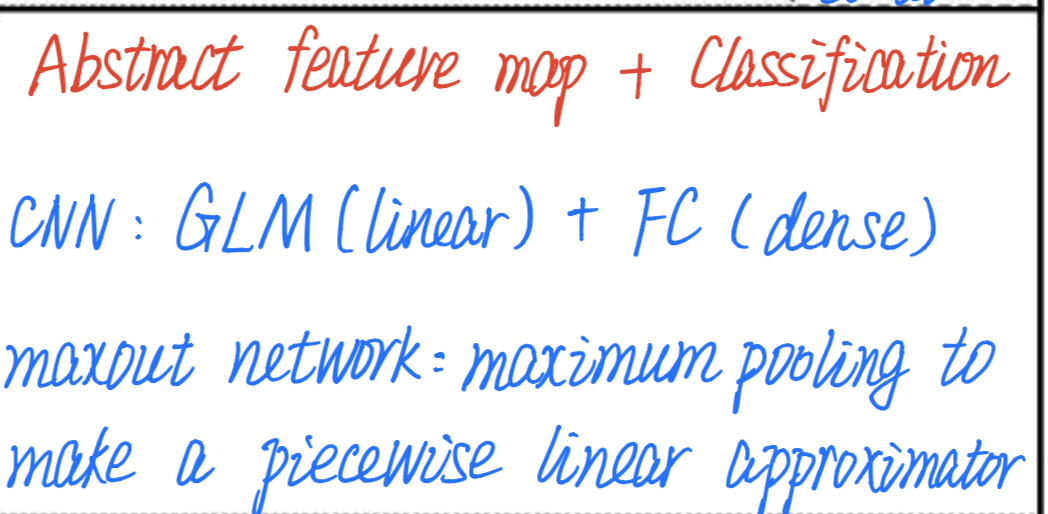 Abstract feature map + Classification
CNN: GLM (linear) + FC (dense)
maxout network: maximum pooling to
make a piecewise linear approximator